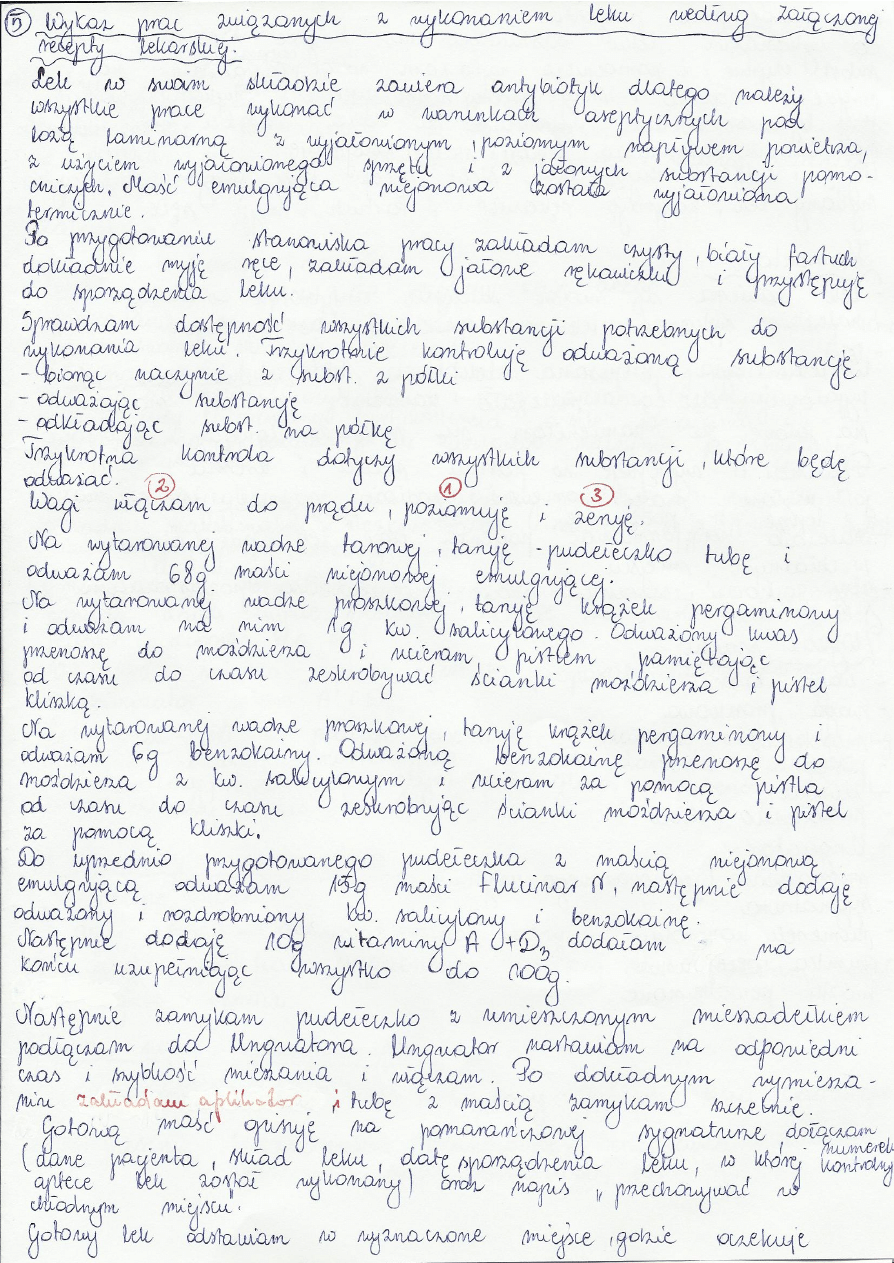 5) Wykaz prac związanych z wykonaniem leku według załączonej
recepty lekarskiej.
Lek w swoim składzie zawiera antybiotyk dlatego należy
wszystkie prace wykonać w warunkach aseptycznych pod
lożą laminarną z wyjałowionym, poziomym napływem powietrza,
z użyciem wyjałowionego sprzętu i z jałowych substancji pomo-
cniczych. Maść emulgująca niejonowa została wyjałowiona
termicznie.
Po przygotowanie stanowiska pracy zakładam czysty, biały fartuch
dokładnie myję ręce, zakładam jałowe rękawiczki i przystępuję
do sporządzenia leku.
Sprawdzam dostępność wszystkich substancji potrzebnych do
wykonania leku. Trzykrotnie kontroluję odważaną substancję
- biorąc naczynie z subst. z półki
- odważając substancję
- odkładając subst. na półkę
Trzykrotna kontrola dotyczy wszystkich substancji, które będę
odważać.
2 1 3
Wagi włączam do prądu, poziomuję i zeruję.
Na wytarowanej wadze tarowej, taruję - pudełeczko tubę i
odważam 68g maści niejonowej emulgującej.
Na wytarowanej wadze proszkowej, taruję krążek pergaminowy
i odważam na nim 1g kw. salicylowego. Odważony kwas
przenoszę do moździerza i ucieram pistlem pamiętając
od czasu do czasu zeskrobywać ścianki moździerza i pistel
kliszką.
Na wytarowanej wadze proszkowej, taruję krążek pergaminowy i
odważam 6g benzokainy. Odważoną benzokainę przenoszę do
moździerza z kw. salicylowym i ucieram za pomocą pistla
od czasu do czasu zeskrobując ścianki moździerza i pistel
za pomocą kliszki.
Do uprzednio przygotowanego pudełeczka z maścią niejonową
emulgującą odważam 15g maści Flucinar N, następnie dodaję
odważony i rozdrobniony kw. salicylowy i benzokainę.
Następnie dodaję 10g witaminy A + D3 dodałam na
końcu uzupełniając wszystko do 100g.
Następnie zamykam pudełeczko z umieszczonym mieszadełkiem
podłączam do Unguatora. Unguator nastawiam na odpowiedni
czas i szybkość mieszania i włączam. Po dokładnym wymiesza-
niu zakładam aplikator i tubę z maścią zamykam szczelnie.
Gotową maść opisuję na pomarańczowej sygnaturze, dołączam
numerek
(dane pacjenta, skład leku, datę sporządzenia leku, w której kontrolny
aptece lek został wykonany) oraz napis "przechowywać w
chłodnym miejscu".
Gotowy lek odstawiam w wyznaczone miejsce, gdzie oczekuje